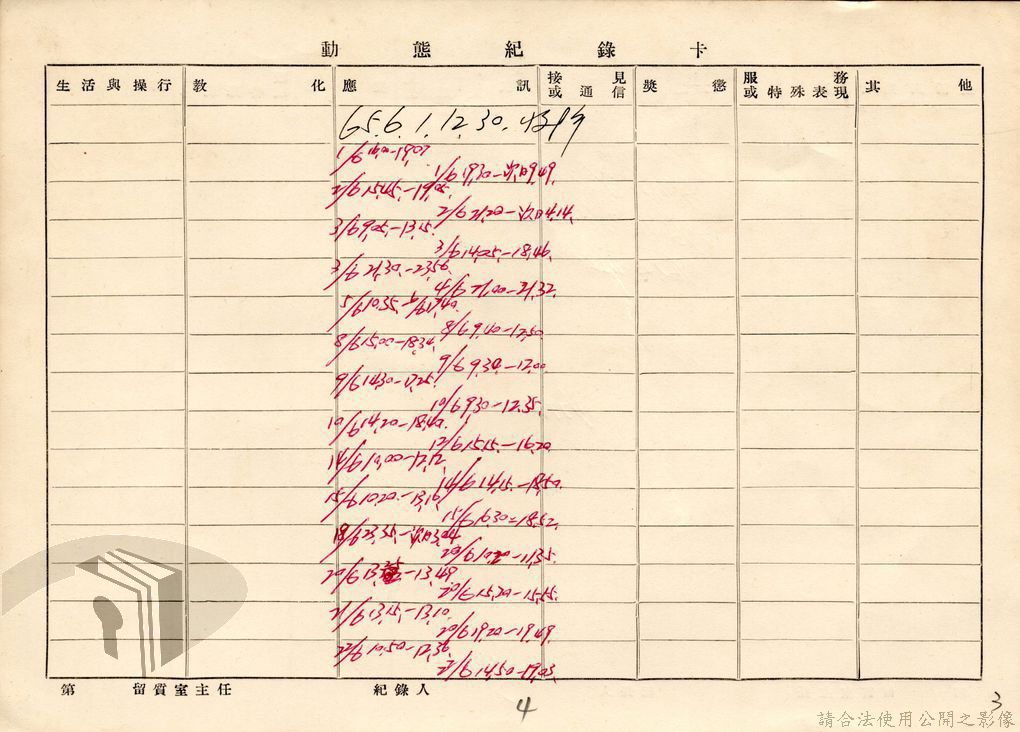 動態紀錄卡
生活與操行 教化 應訊 接見或通信 獎懲 服務或特殊表現 其他
65.6.1.12.30.
1/6 19.30-次日9.49.
2/6 15.45.-19.05.
2/6 21.20-次日4.14.
3/6 9.05-13.15.
3/6 14.05-18.46.
3/6 21.30.-23.56.
4/6 21.00-21.32.
5/6 10.35.
8/6 9.40-12.50.
8/6 15.00-18.34.
9/6 9.34.-12.00.
9/6 14.30-17.25.
10/6 9.30-12.35.
10/6 14.20-18.40.
12/6 15.15.-16.20.
14/6 10.00-12.12.
14/6 14.15.-18.50.
15/6 10.20.-13.10.
15/6 16.30-18.52.
次日3.04
20/6 10.20-11.35.
20/6 13.25-13.48.
20/6 15.20-15.55.
21/6 13.15.-13.10.
20/6 19.20-19.49.
22/6 10.50-12.36.
22/6 14.50-19.03.
第 留質室主任 紀錄人
4
3
請合法使用公開之影像